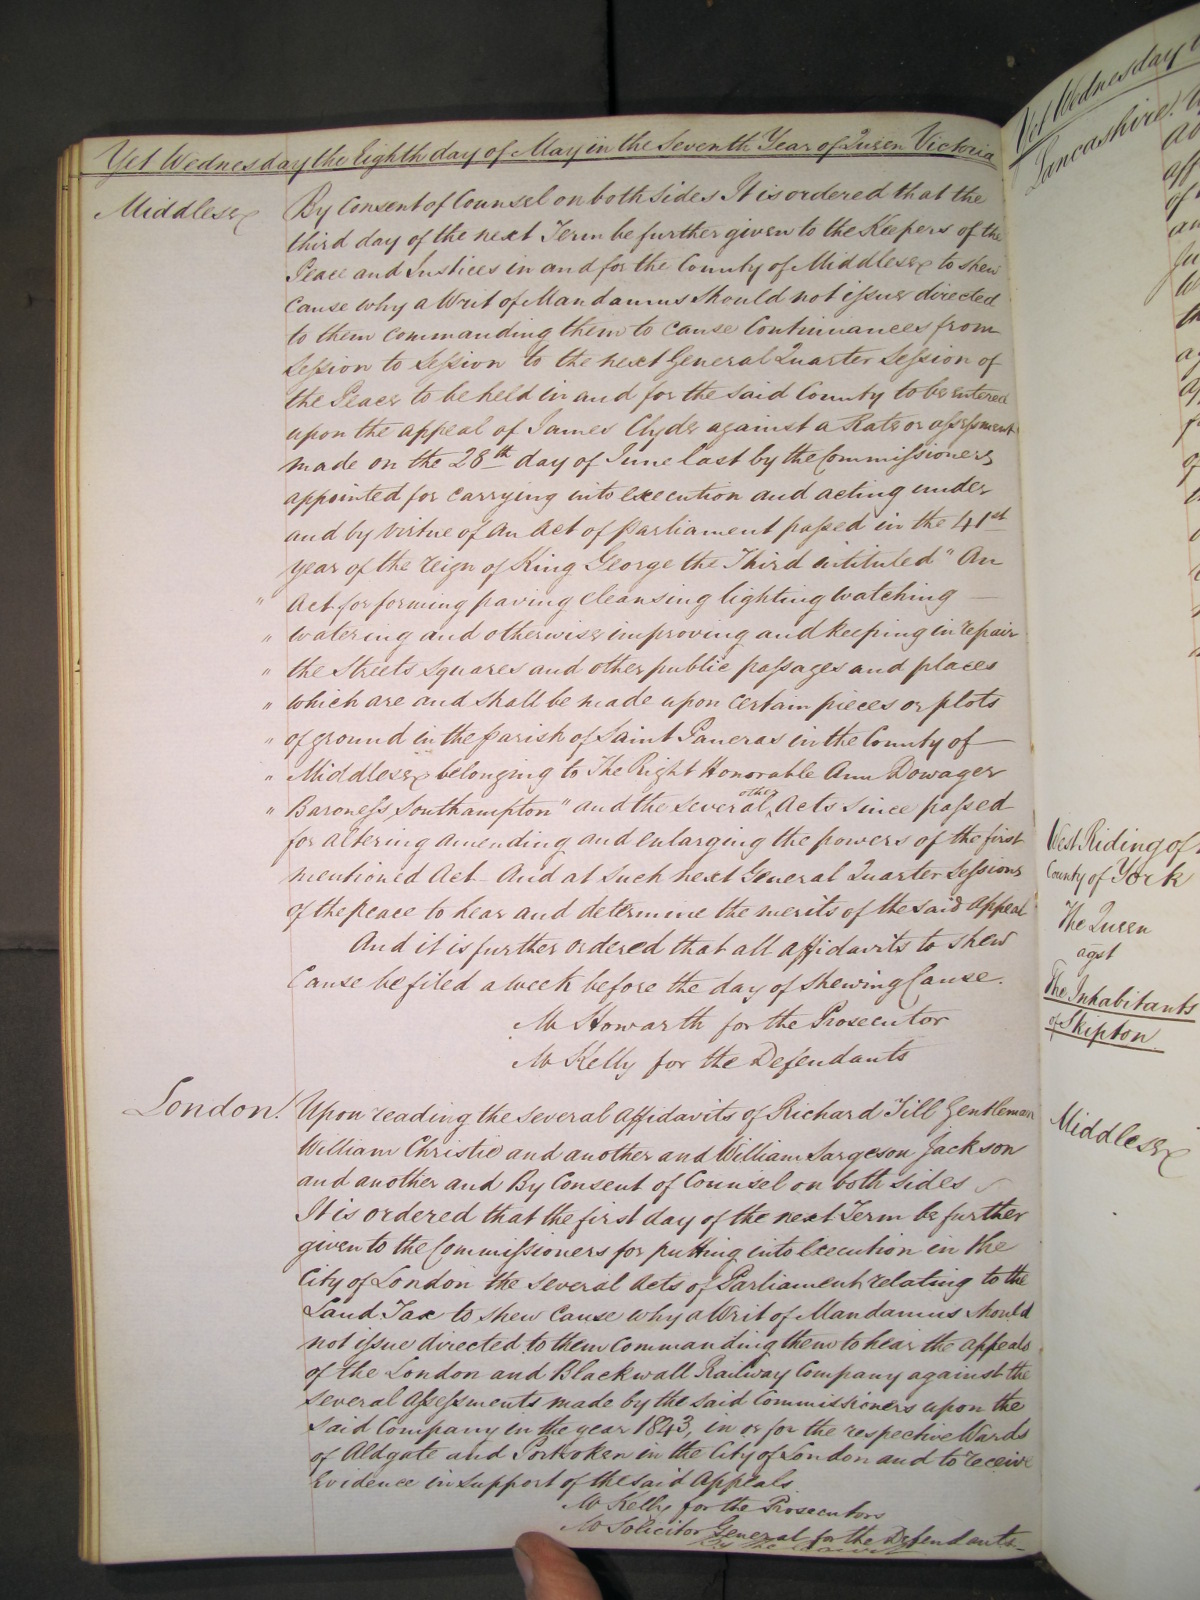 Yet Wednesday the Eighth day of May in the Seventh Year of Queen Victoria
Middlesex
By Consent of Counsel on both sides It is ordered that the
third day of the next Term be further given to the Keepers of the
Peace and Justices in and for the County of Middlesex to shew
Cause why a Writ of Mandamus should not issue directed
to them commanding them to cause Continuances from
Session to Session to the next General Quarter Session of
the Peace to be held in and for the said County to be entered
upon the appeal of James Clyde against a Rate or assessment
made on the 28th day of June last by the Commissioners
appointed for carrying into execution and acting under
and by virtue of an Act of parliament passed in the 41st
year of the reign of King George the Third intituled "An
" Act for forming paving cleansing lighting watching
" watering and otherwise improving and keeping in repair
" the Streets squares and other public passages and places
" which are and shall be made upon certain pieces or plots
" of ground in the parish of Saint Pancras in the County of
" Middlesex belonging to The Right Honorable Ann Dowager
" Baroness Southampton" and the several other Acts since passed
for altering amending and enlarging the powers of the first
mentioned Act And at such next General Quarter Sessions
of the peace to hear and determine the merits of the said appeal
And it is further ordered that all affidavits to shew
Cause be filed a week before the day of shewing Cause.
Mr Howarth for the Prosecutor
Mr Kelly for the Defendants
London.
Upon reading the several affidavits of Richard Till Gentleman
William Christie and another and William Sargeson Jackson
and another and By Consent of Counsel on both sides
It is ordered that the first day of the next Term be further
given to the Commissioners for putting into Execution in the
City of London the several Acts of Parliament relating to the
Land Tax to shew Cause why a Writ of Mandamus should
not issue directed to them commanding them to hear the appeals
of the London and Blackwall Railway Company against the
several assessments made by the said Commissioners upon the
said Company in the year 1843, in or for the respective Wards
of Aldgate and Portsoken in the City of London and to receive
Evidence in support of the said Appeals.
Mr Kelly for the Prosecutors
Mr Solicitor General for the Defendants
By the Court
Yet Wednesday
Lancashire.
West Riding of
County of York
The Queen
agst
The Inhabitants
of Skipton
Middlesex